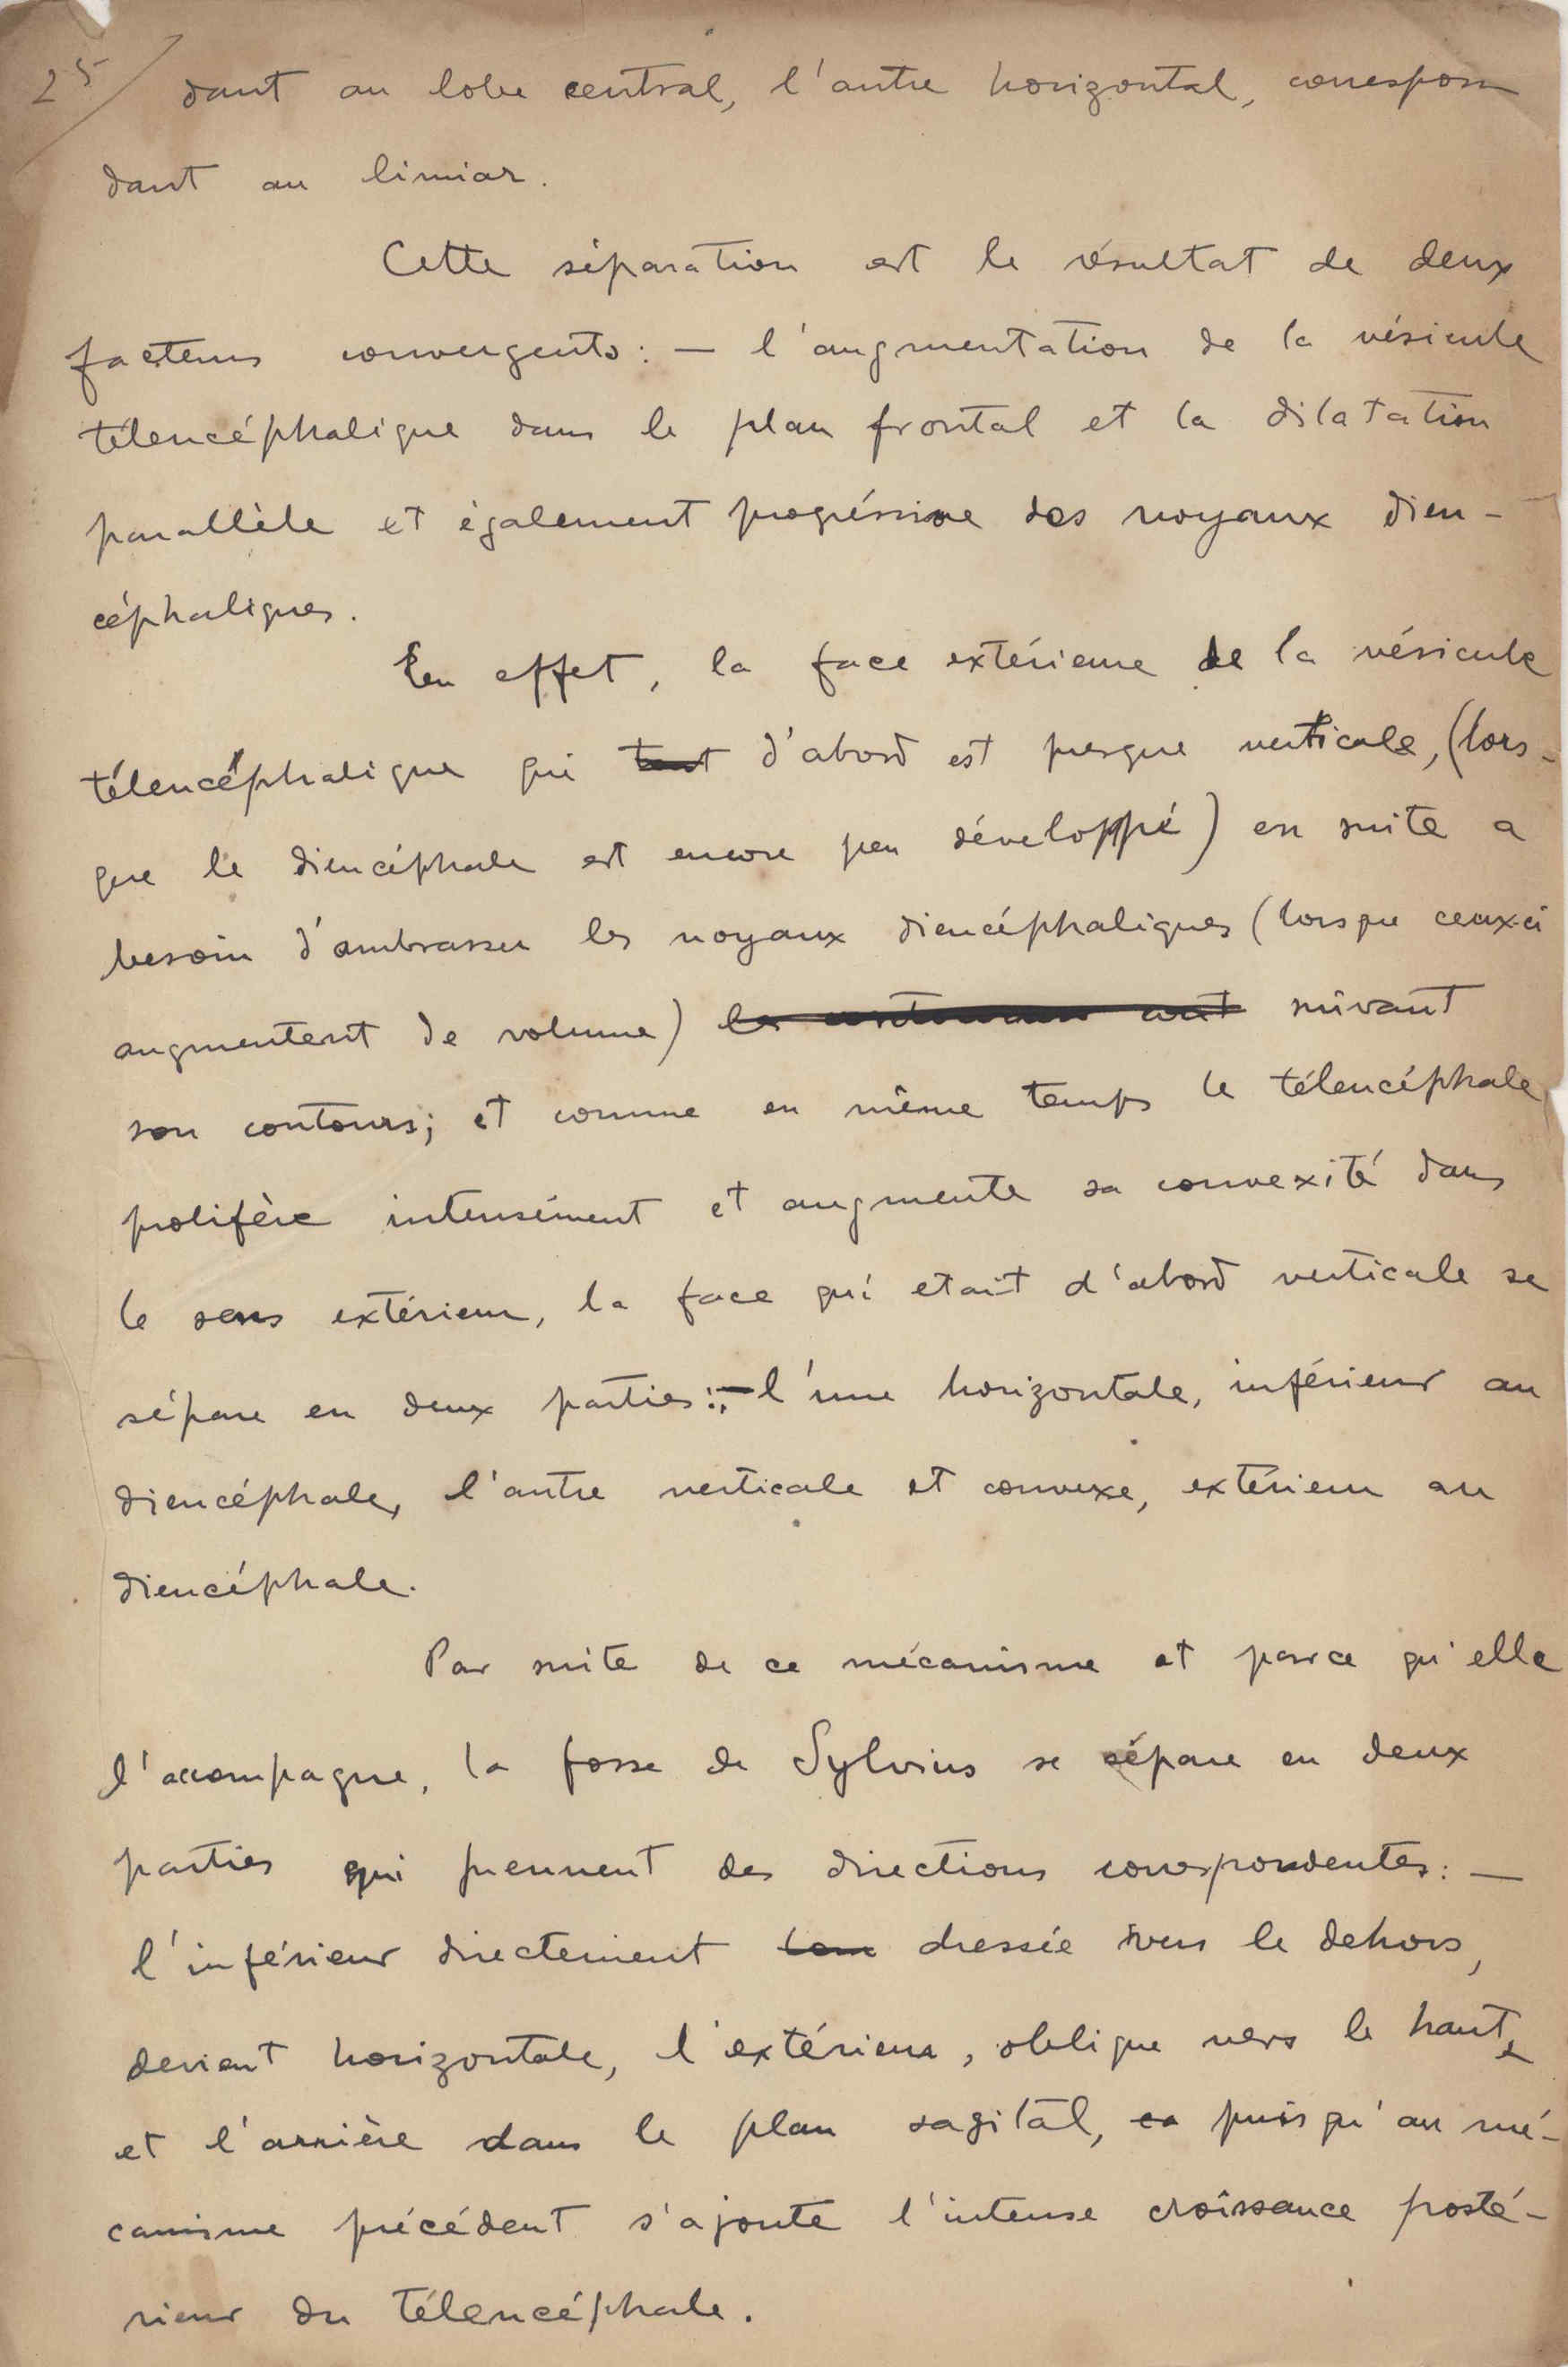 25/ dant au lobe central, l'autre horizontal, correspon
dant au limiar.
Cette séparation est le résultat de deux
facteurs convergents: — l'augmentation de la vésicule
télencéphalique dans le plan frontal et la dilatation
parallèle et également progréssive des noyaux dien-
céphaliques.
En effet, la face extérieure de la vésicule
télencéphalique qui tout d'abord est presque verticale, (lors-
que le diencéphale est encore peu développé) en suite a
besoin d'ambrasser les noyaux diencéphaliques (lorsque ceux-ci
augmentent de volume) suivant
son contours; et comme en même temps le télencéphale
prolifère intensément et augmente sa convexité dans
le sens extérieur, la face qui etait d'abord verticale se
sépare en deux parties: — l'une horizontale, inférieur au
diencéphale, l'autre verticale et convexe, extérieur au
diencéphale.
Par suite de ce mécanisme et parce qu'elle
l'accompagne, la fosse de Sylvius se sépare en deux
parties qui prennent des directions correspondentes: —
l'inférieur directement dressée vers le dehors,
devient horizontale, l'extérieur, oblique vers le haut,
et l'arrière dans le plan sagital, puisqu'au mé-
canisme précédent s'ajoute l'intense croissance posté-
rieur du télencéphale.